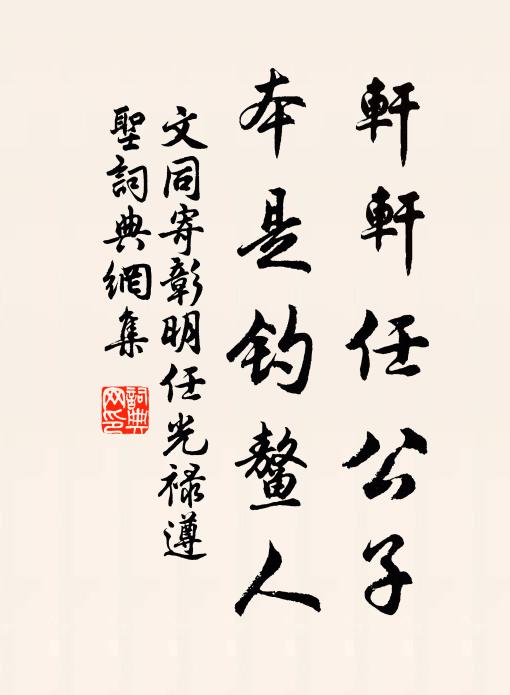 軒軒任公子
本是鈞鰲人
文同寄彰明任光祿遵
聖詞典網集
詞典
网印